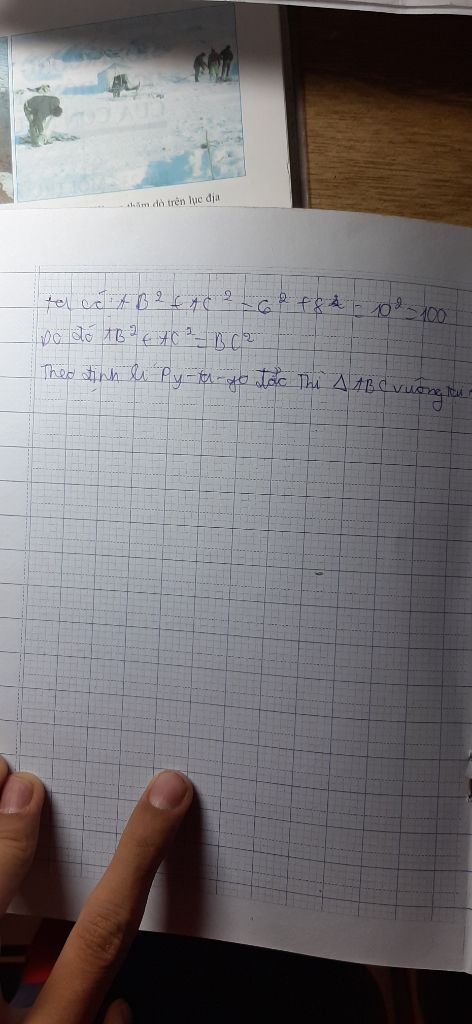 thăm dò trên lục địa
Ta có: AB² + AC² = 6² + 8² = 10² = 100
Do đó AB² + AC² = BC²
Theo định lí Py-ta-go đảo Thì △ ABC vuông tại